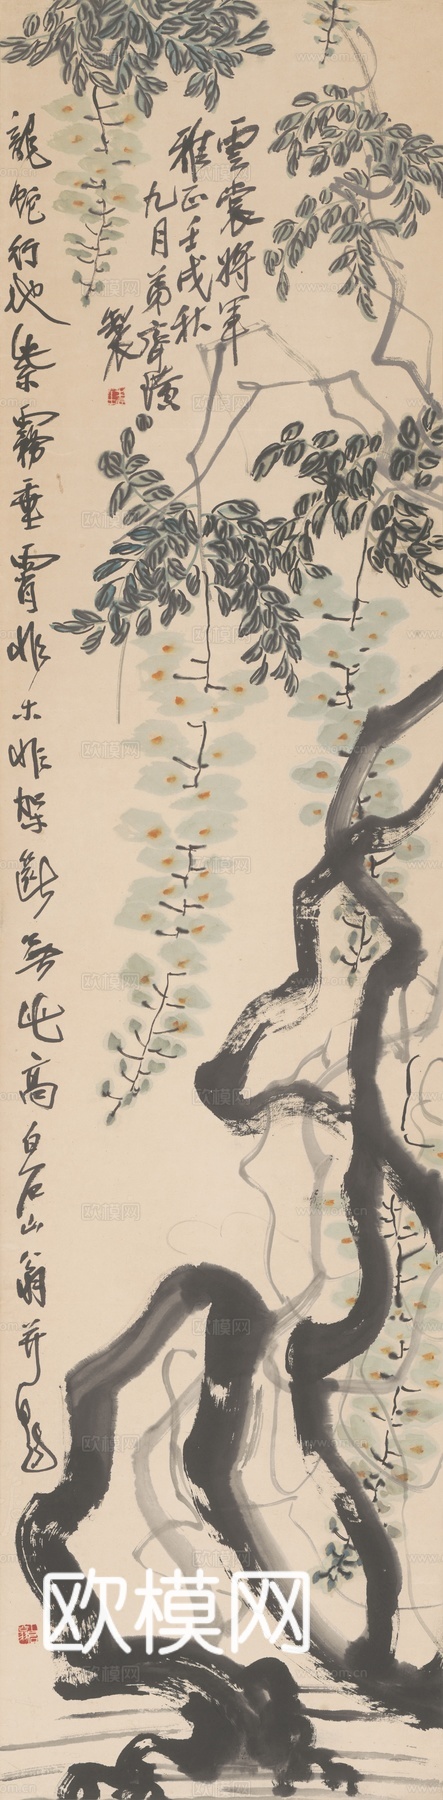 雲裳將軍
雅正壬戌秋
九月弟齊璜
製
龍蛇行地紫霧垂霄非木非架無此高白石山翁并題
欧模网